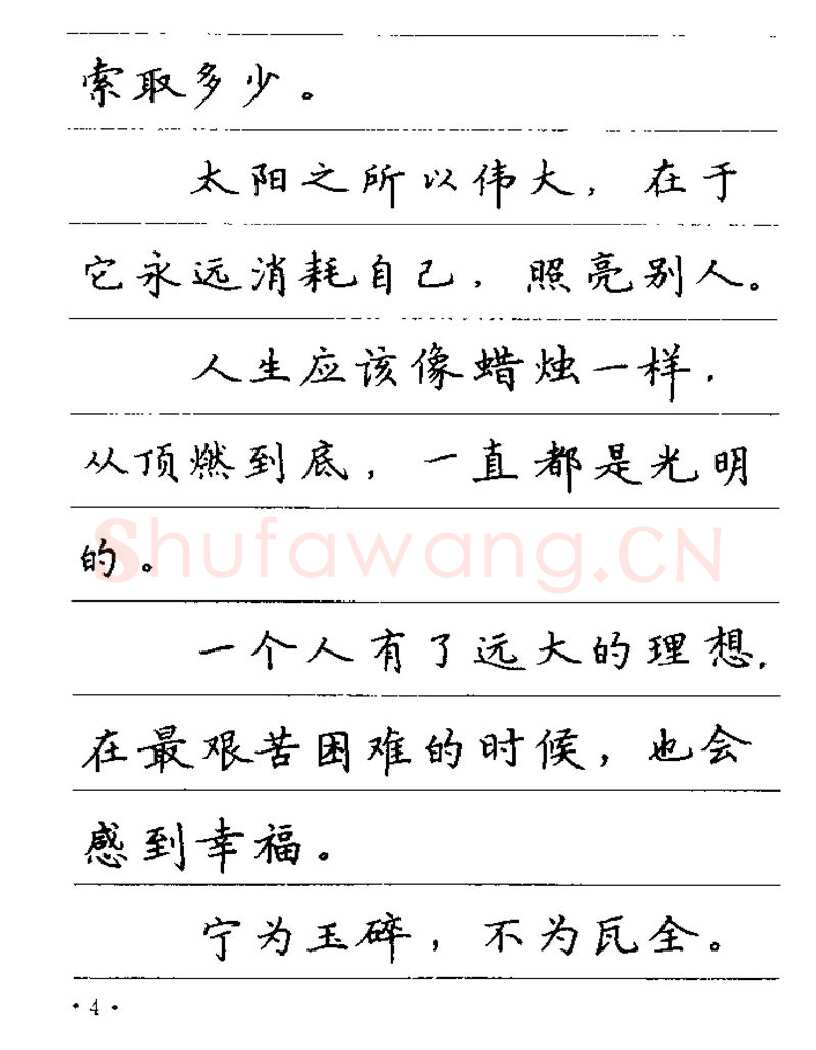 索取多少。
太阳之所以伟大，在于
它永远消耗自己，照亮别人。
人生应该像蜡烛一样，
从顶燃到底，一直都是光明
的。
Shufawang.CN
一个人有了远大的理想，
在最艰苦困难的时候，也会
感到幸福。
宁为玉碎，不为瓦全。
·4·